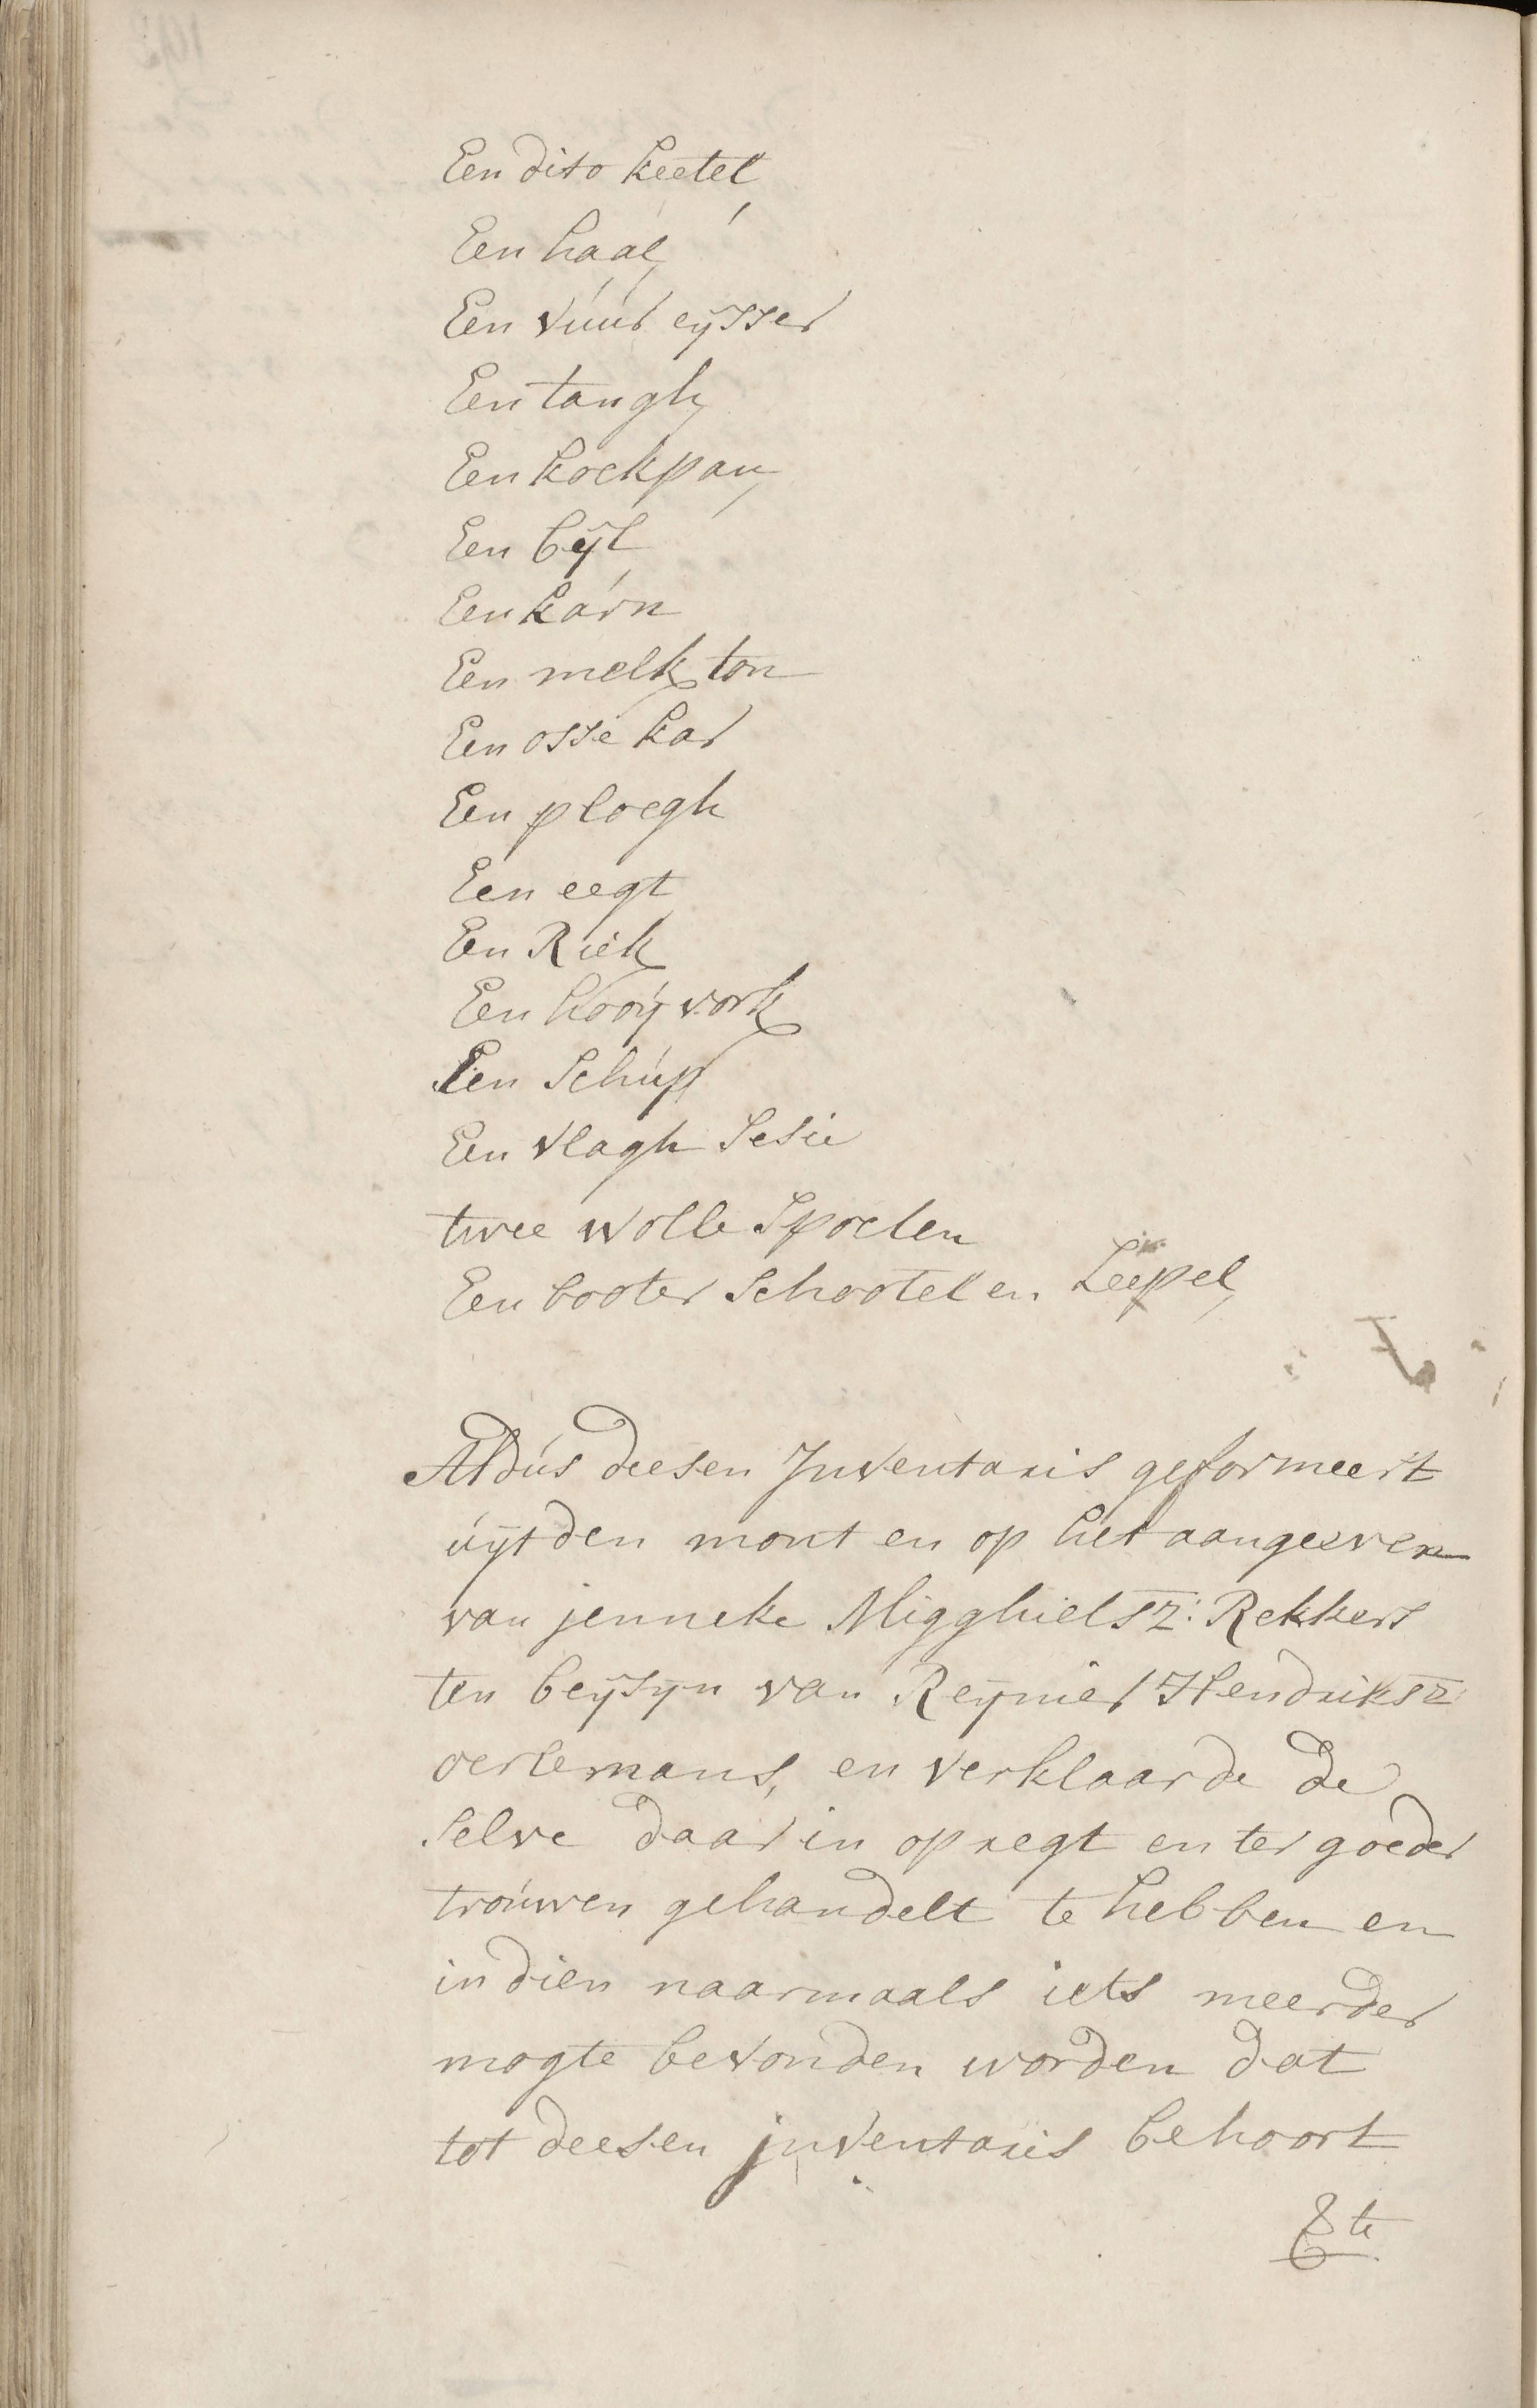 Een dito keetel
Een haal
Een vuur eysser
Een tangh
Een koekpan
Een byl
Een karn
Een melk ton
Een osse kar
Een ploegh
Een eegt
Een Riek
Een hooy vork
Een Schup
Een vlagh Sesie
twee wolle Spoelen
Een booter Schootel en Leepel
Aldus deesen Inventaris geformeert
uyt den mont en op het aangeeven
van jenneke Migghielsz: Rekkers
ten beysyn van Reynier Hendriksz
oerlemans, en verklaarde de
selve daar in opregt en ter goeder
trouwen gehandelt te hebben en
in dien naarmaals iets meerder
mogte bevonden worden dat
tot deesen inventaris behoort
te